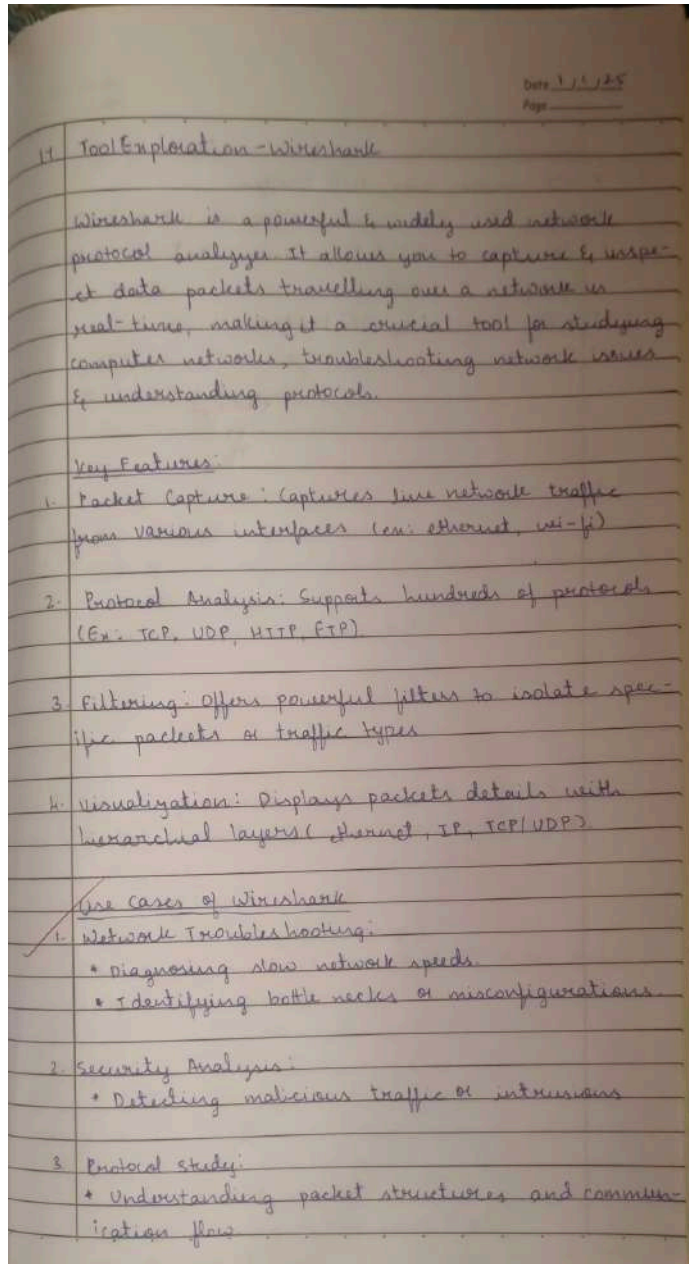 Date 1/1/25
Page
17 Tool Exploration - Wireshark
Wireshark is a powerful & widely used network
protocol analyzer. It allows you to capture & inspe-
ct data packets travelling over a network in
real-time, making it a crucial tool for studying
computer networks, troubleshooting network issues
& understanding protocols.
Key Features:
1. Packet Capture: Captures live network traffic
from various interfaces (ex: ethernet, wi-fi)
2. Protocol Analysis: Supports hundreds of protocols
(Ex: TCP, UDP, HTTP, FTP)
3. Filtering: Offers powerful filters to isolate spec-
ific packets or traffic types
4. Visualization: Displays packets details with
hierarchial layers (ethernet, IP, TCP/UDP).
Use Cases of Wireshark
1. Network Troubleshooting:
• Diagnosing slow network speeds.
• Identifying bottle necks or misconfigurations.
2. Security Analysis:
• Detecting malicious traffic or intrusions
3. Protocol Study:
• Understanding packet structures and commun-
ication flow.